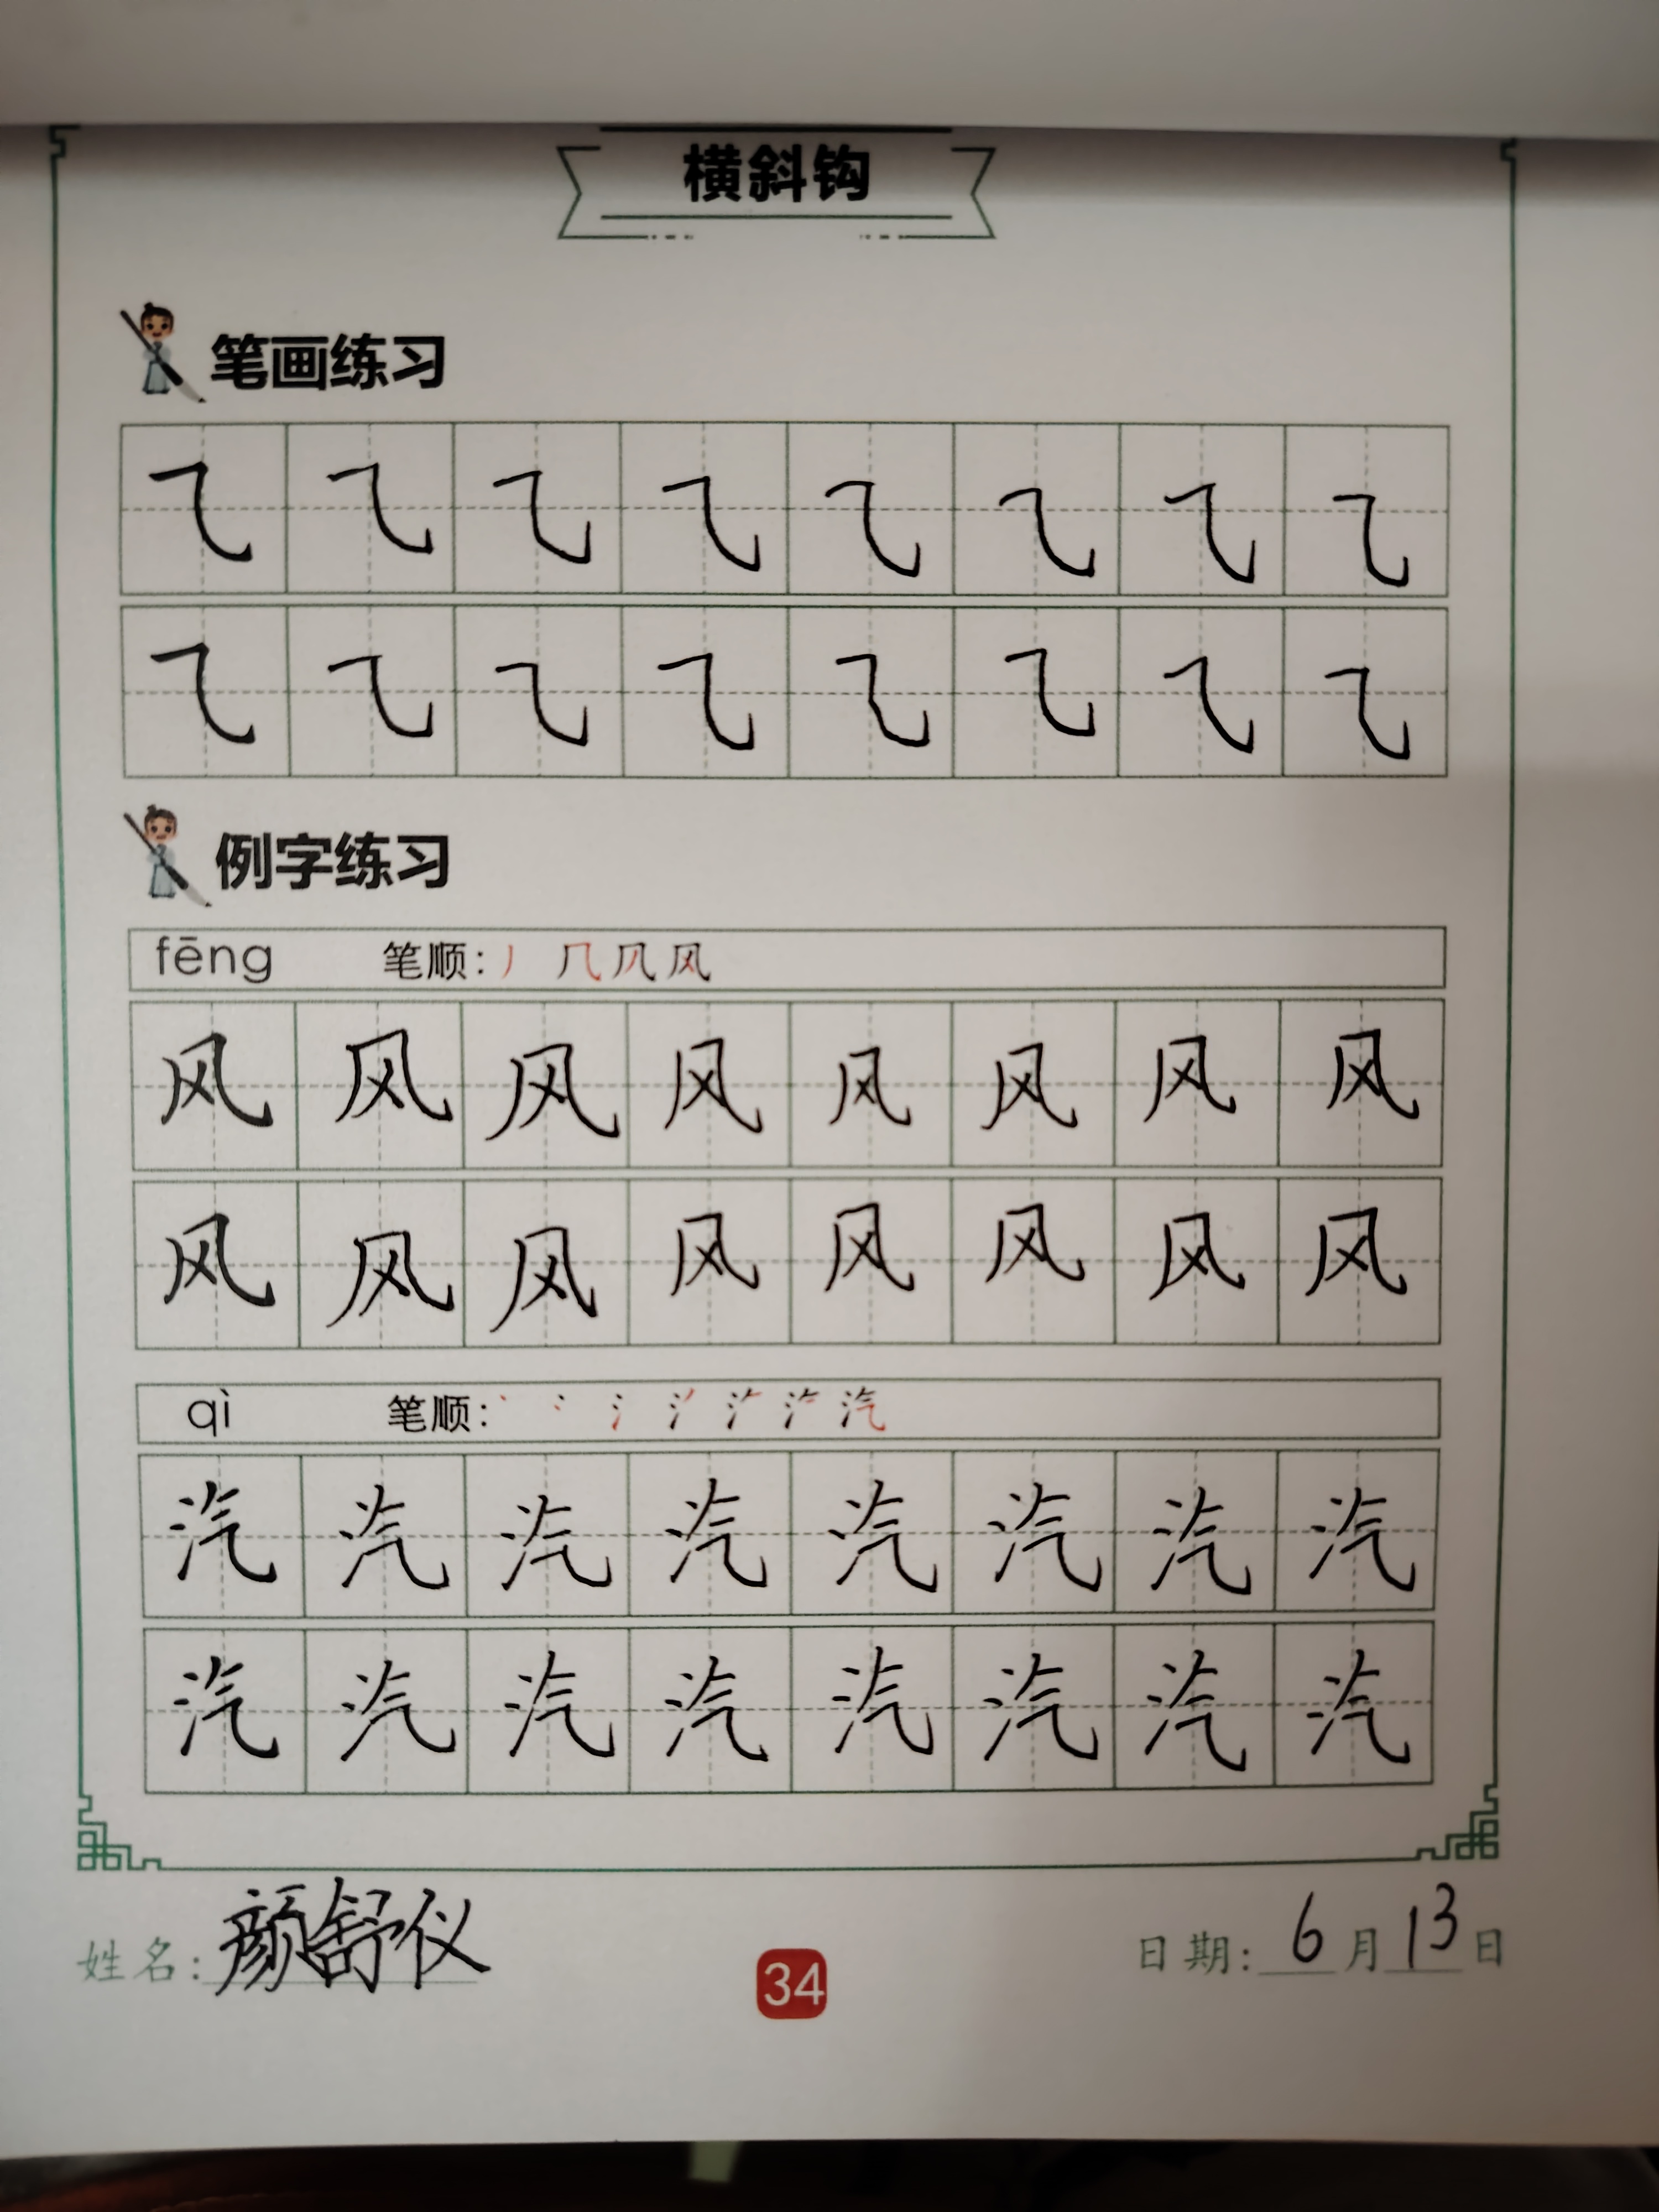 横斜钩
笔画练习
⺄ ⺄ ⺄ ⺄ ⺄ ⺄ ⺄ ⺄
⺄ ⺄ ⺄ ⺄ ⺄ ⺄ ⺄ ⺄
例字练习
fēng 笔顺: 丿 ⺇ 风
风 风 风 风 风 风 风 风
风 风 风 风 风 风 风 风
qì 笔顺: 丶 冫 氵 汽
汽 汽 汽 汽 汽 汽 汽 汽
汽 汽 汽 汽 汽 汽 汽 汽
姓名: 颜舒仪 34 日期: 6月13日